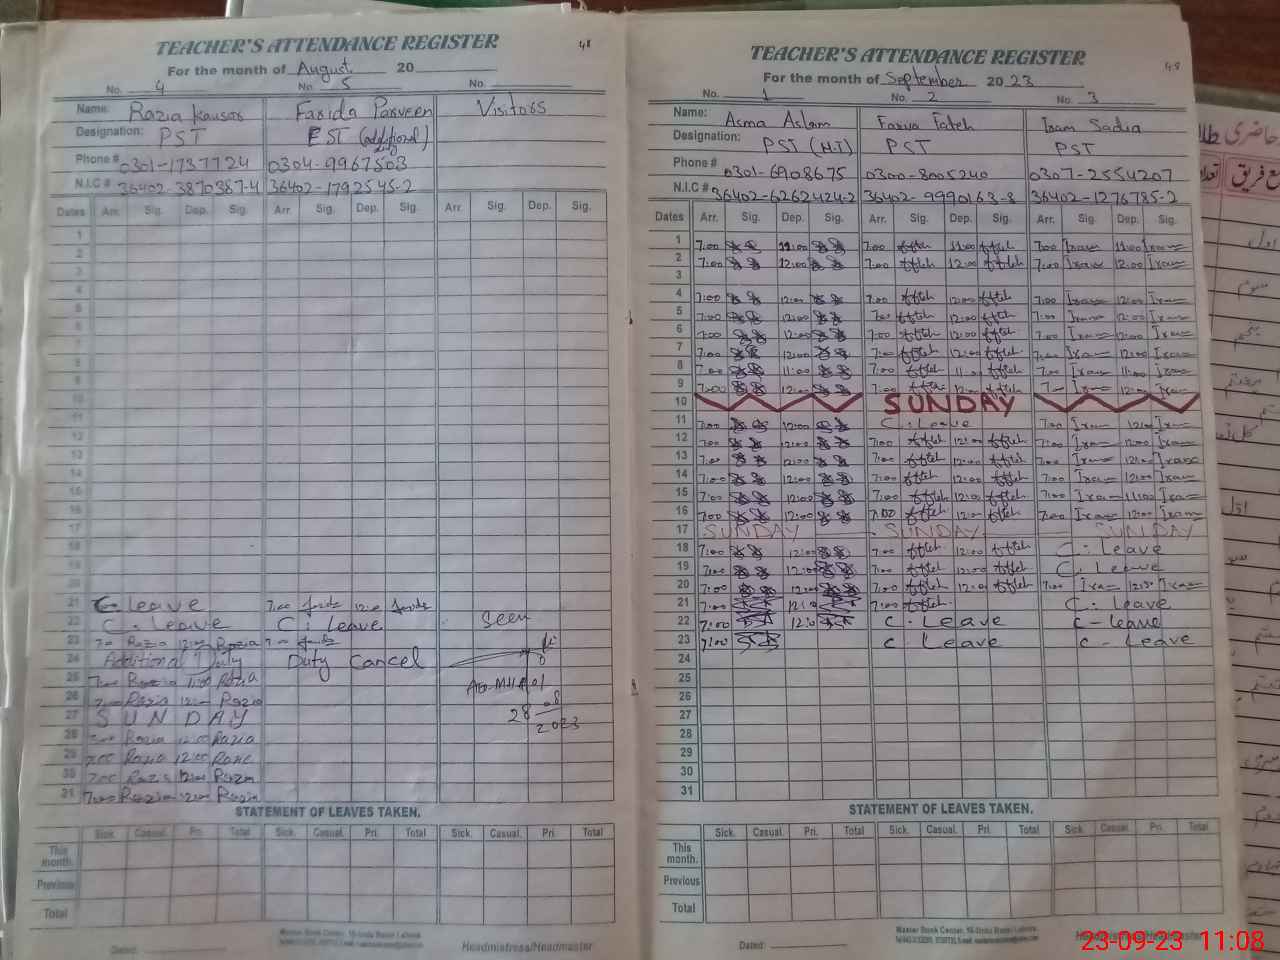 TEACHER'S ATTENDANCE REGISTER 48
For the month of August 20
No. 4 No. 5 No.
Name: Razia Kausar Farida Parveen Visitors
Designation: PST EST (additional)
Phone # 0301-1737724 0304-9967503
N.I.C # 36402-3870387-4 36402-1792545-2
Dates Arr. Sig. Dep. Sig. Arr. Sig. Dep. Sig. Arr. Sig. Dep. Sig.
1
2
3
4
5
6
7
8
9
10
11
12
13
14
15
16
17
18
19
20
21 C-leave 7:00 12:00
22 C-leave C: leave Seen
23 7:00 Razia 12:00 Razia 7:00
24 Additional Duty Duty Cancel
25 7:00 Razia 11:00 Razia
26 7:00 Razia 12:00 Razia
27 SUNDAY 28 08 2023
28 7:00 Razia 12:00 Razia
29 7:00 Razia 12:00 Razia
30 7:00 Razia 12:00 Razia
31 7:00 Razia 12:00 Razia
STATEMENT OF LEAVES TAKEN.
Sick. Casual. Pri. Total Sick. Casual. Pri. Total Sick. Casual. Pri. Total
This month.
Previous
Total
Dated: Headmistress/Headmaster
TEACHER'S ATTENDANCE REGISTER 48
For the month of September 2023
No. 1 No. 2 No. 3
Name: Asma Aslam Fariya Fateh Iram Sadia
Designation: PST (H.T) PST PST
Phone # 0301-6908675 0300-8005240 0307-2554207
N.I.C # 36402-6262424-2 36402-9990163-8 36402-1276785-2
Dates Arr. Sig. Dep. Sig. Arr. Sig. Dep. Sig. Arr. Sig. Dep. Sig.
1 7:00 11:00 7:00 11:00 7:00 Iram 11:00 Iram
2 7:00 12:00 7:00 12:00 7:00 Iram 12:00 Iram
3
4 7:00 12:00 7:00 12:00 7:00 Iram 12:00 Iram
5 7:00 12:00 7:00 12:00 7:00 Iram 12:00 Iram
6 7:00 12:00 7:00 12:00 7:00 Iram 12:00 Iram
7 7:00 12:00 7:00 12:00 7:00 Iram 12:00 Iram
8 7:00 11:00 7:00 11:00 7:00 Iram 11:00 Iram
9 7:00 12:00 7:00 12:00 7:00 Iram 12:00 Iram
10 SUNDAY
11 7:00 12:00 C: Leave 7:00 Iram 12:00 Iram
12 7:00 12:00 7:00 12:00 7:00 Iram 12:00 Iram
13 7:00 12:00 7:00 12:00 7:00 Iram 12:00 Iram
14 7:00 12:00 7:00 12:00 7:00 Iram 12:00 Iram
15 7:00 12:00 7:00 12:00 7:00 Iram 11:00 Iram
16 7:00 12:00 7:00 12:00 7:00 Iram 12:00 Iram
17 SUNDAY SUNDAY SUNDAY
18 7:00 12:00 7:00 12:00 C: Leave
19 7:00 12:00 7:00 12:00 C: Leave
20 7:00 12:00 7:00 12:00 7:00 Iram 12:30 Iram
21 7:00 7:00 C: Leave
22 7:00 C: Leave C-Leave
23 7:00 C Leave C-Leave
24
25
26
27
28
29
30
31
STATEMENT OF LEAVES TAKEN.
Sick. Casual. Pri. Total Sick. Casual. Pri. Total Sick. Casual. Pri. Total
This month.
Previous
Total
Dated: Headmistress/Headmaster
23-09-23 11:08
حاضری طلا